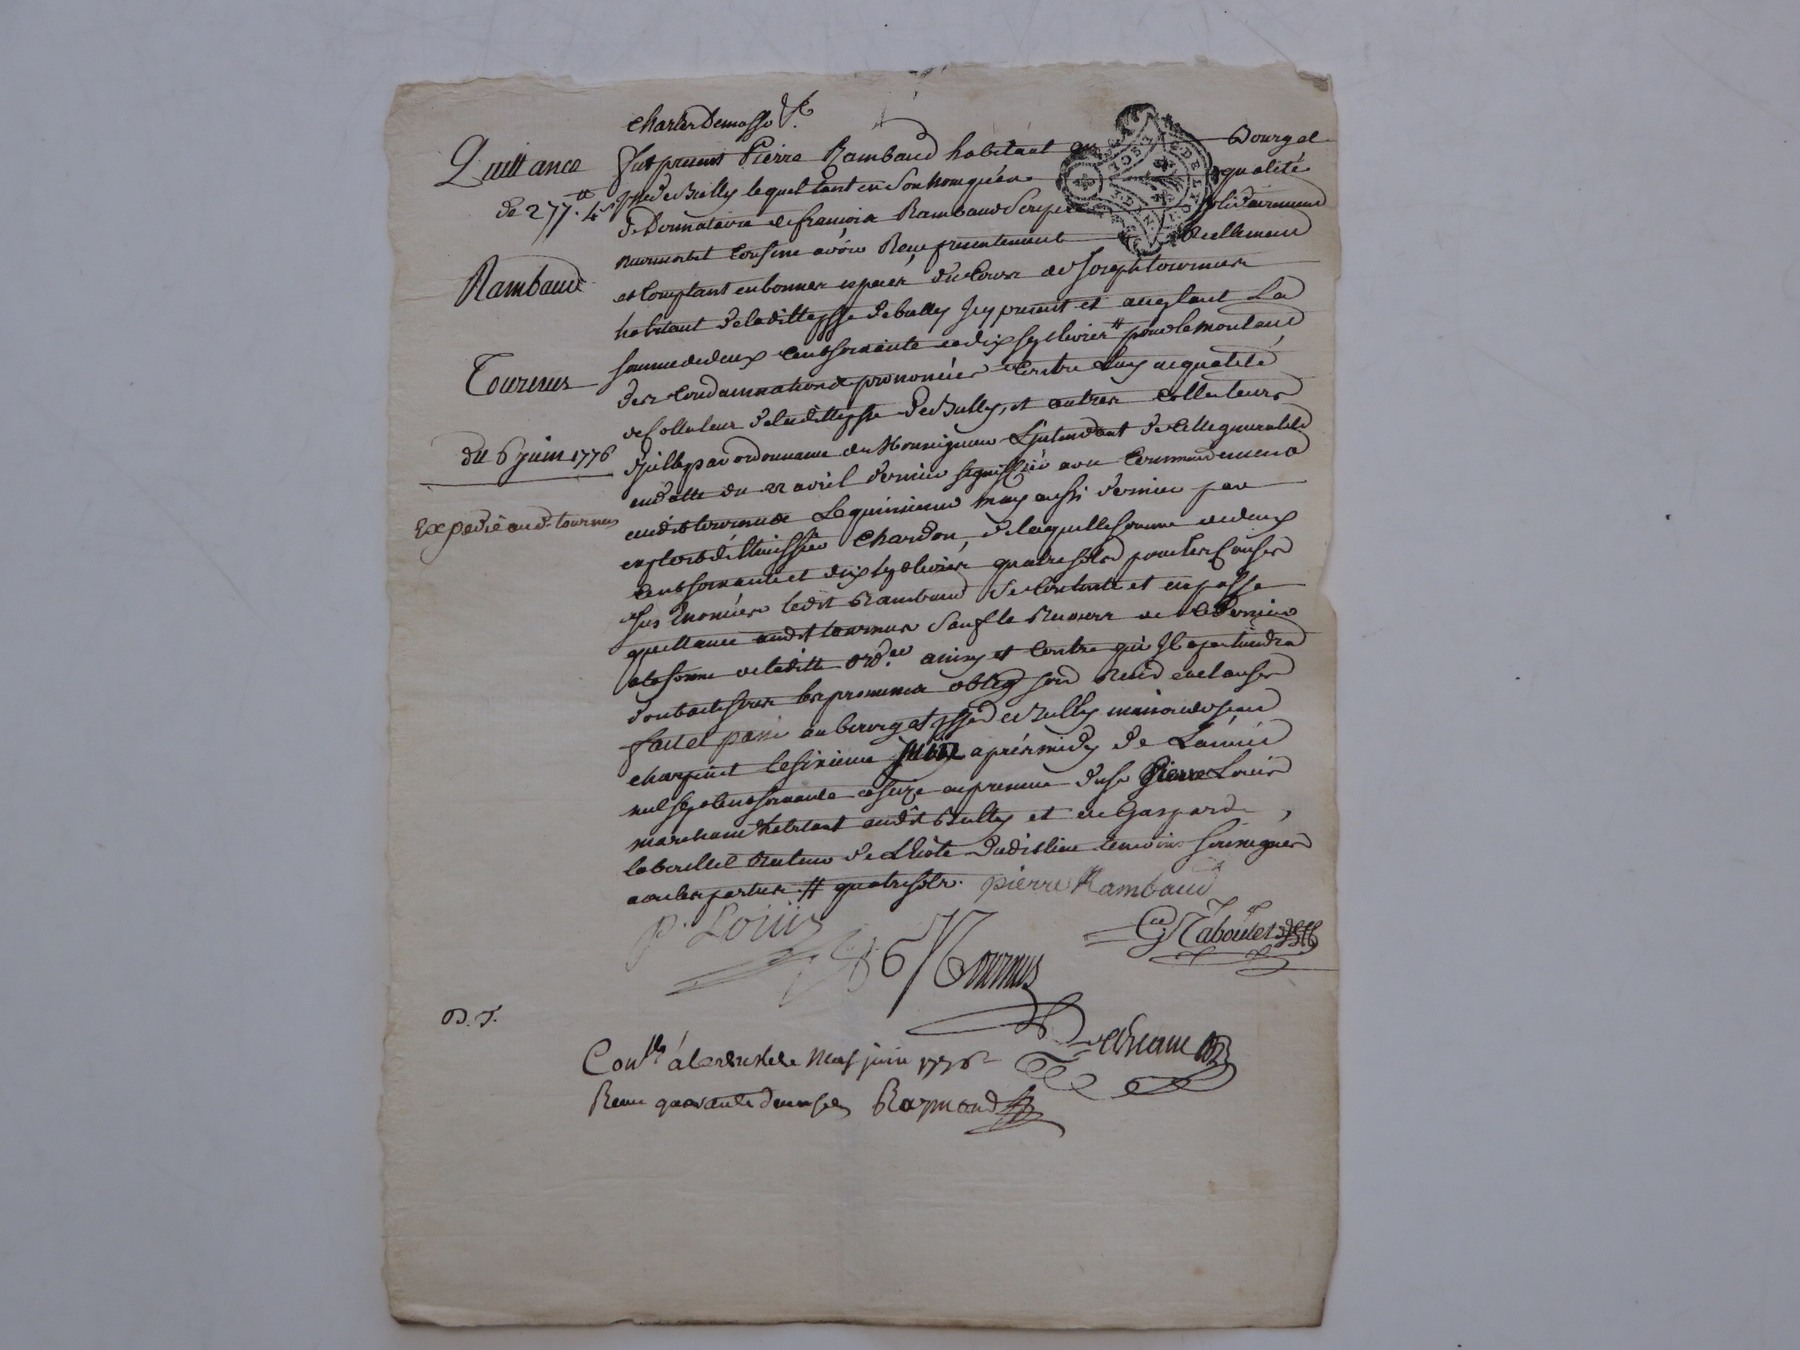 Quittance
de 277.tt 4s
Rambaud
Tournus
du 6 juin 1776
Expedié audt tournus
fut present Pierre Rambaud habitant au Bourg et
psse de Bully lequel tant en son nom qu'en qualité
de Donnataire de françois Rambaud son pere solidairement
avoir Reçu presentement Reellement
et Comptant en bonnes especes du Cours de Joseph tournus
habitant de laditte psse de bully Icy present et acceptant La
somme de deux cent soixante et dix sept livres 4s pour le montant
des Condamnations prononcées Contre Luy en qualité
de Collecteur de laditte psse de Bully, et autres Collecteurs
d'jcelle par ordonnance de Monseigneur L'jntendant de cette generalité
en datte du 22 avril dernier signiffiée avec Commandement
audit tournus Le quinzieme may aussi dernier par
exploit de l'huissier Chardon, de laquelle somme de deux
Cent soixante et dix sept livres quatre sols pour les Causes
sus Enoncées ledit Rambaud se Contente et en passe
quittance audit tournus sauf le Recours de ce Dernier
a la forme de laditte ordce ainsy et Contre qui Il apartiendra
Dont acte sous les promesses oblig soud Renond et clauses
fait et passé au bourg et psse de Bully maison de Jean
charpinet le sixieme juin après midy de L'année
mil sept cent soixante et seize en presence de sr Pierre Louis
marchand habitant audit Bully et de Gaspard
taboullet dudit lieu temoins soussignes
avec les parties. # quatre sols. pierre Rambaud
P. Louis
Gd Taboulet
J Tournus
D. T.
Conllé à le neuf juin 1776
Reçu quarante deux sols Raymond